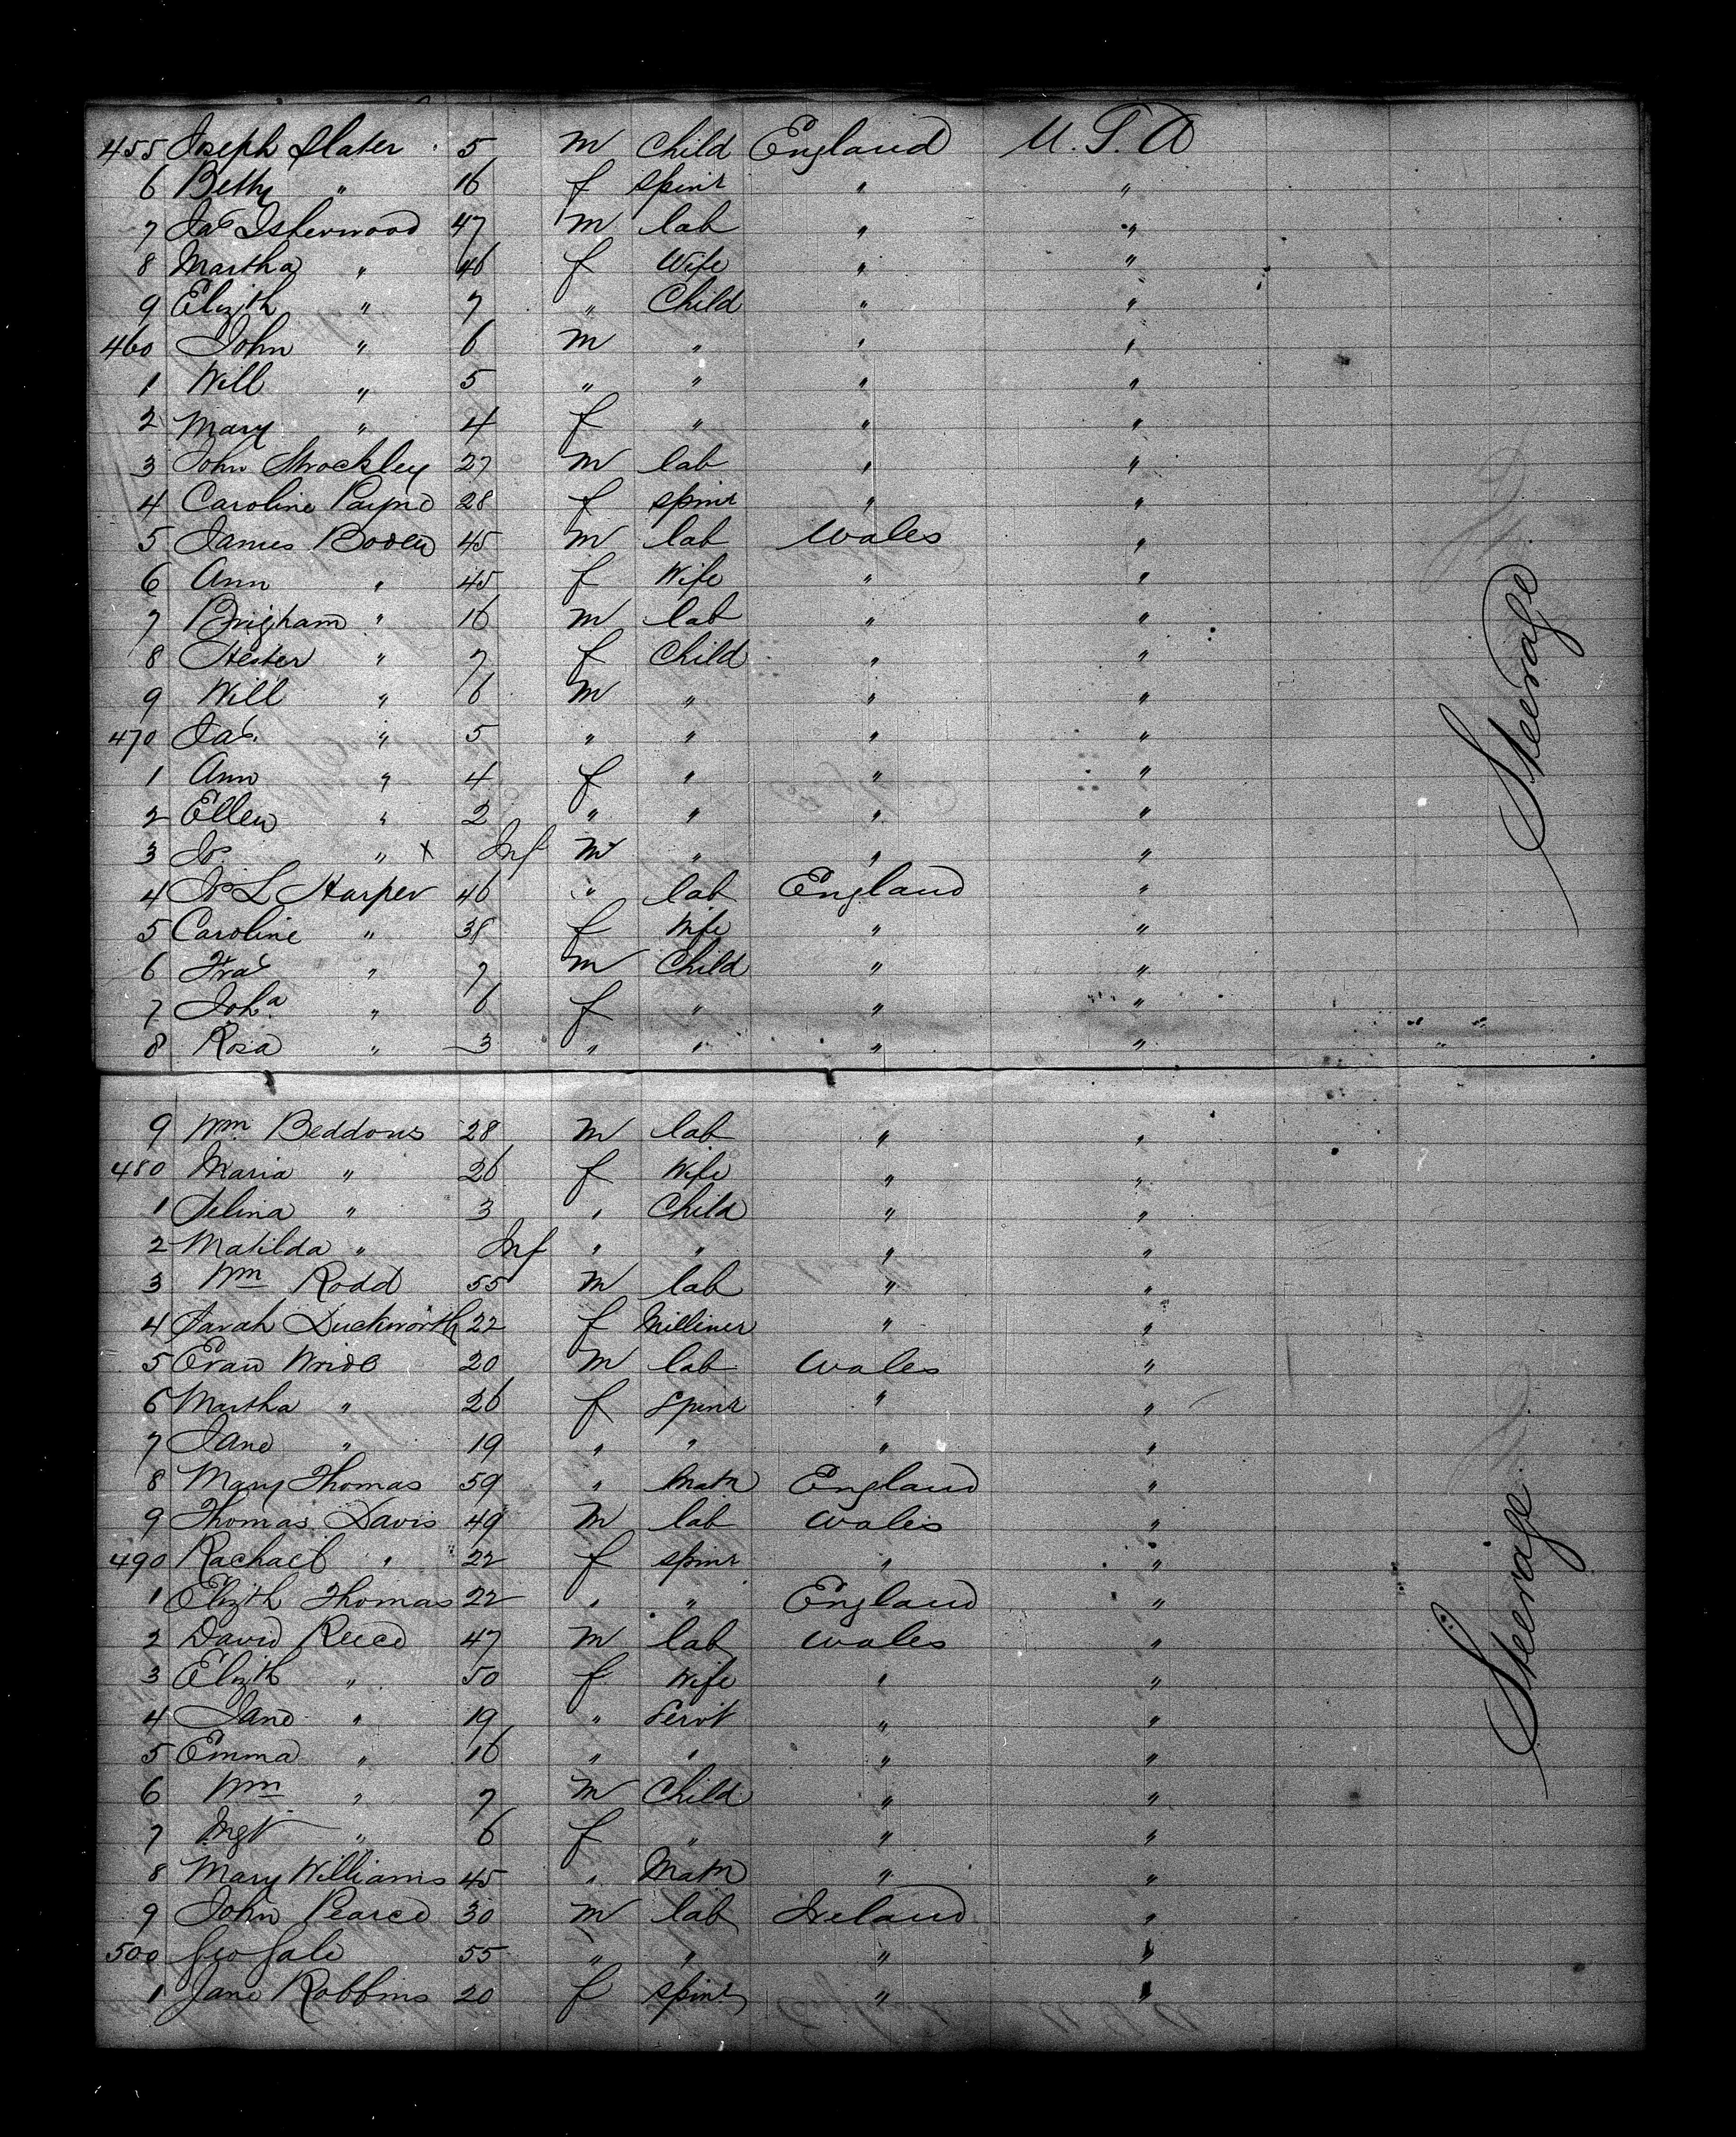 455 Joseph Slater 5 m Child England U.S.A
6 Betty " 16 f spinr " "
7 Jas Isherwood 47 m lab " "
8 Martha " 46 f Wife " "
9 Elizth " 7 " Child " "
460 John " 6 m " " "
1 Will " 5 " " " "
2 Mary " 4 f " " "
3 John 27 m lab " "
4 Caroline Payne 28 f spinr " "
5 James Bowen 45 m lab Wales "
6 Ann " 45 f Wife " "
7 Brigham " 16 m lab " "
8 Hester " 7 f Child " "
9 Will " 6 m " " "
470 Jas. " 5 " " " "
1 Ann " 4 f " " "
2 Ellen " 2 " " " "
3 Jos " x Inf m " " "
4 Jos L Harper 46 " lab England "
5 Caroline " 38 f Wife " "
6 Fras " 7 m Child " "
7 Joha " 6 f " " "
8 Rosa " 3 " " " "
Steerage
9 Wm Beddows 28 m lab " "
480 Maria " 26 f Wife " "
1 Selina " 3 " Child " "
2 Matilda " Inf " " " "
3 Wm Rodd 55 m lab " "
4 Sarah Duckworth 22 f Milliner " "
5 Evan Wride 20 m lab Wales "
6 Martha " 26 f Spinr " "
7 Jane " 19 " " " "
8 Mary Thomas 59 " Matn England "
9 Thomas Davis 49 m lab Wales "
490 Rachael " 22 f spinr " "
1 Elizth Thomas 22 " " England "
2 David Reece 47 m lab Wales "
3 Elizth " 50 f Wife " "
4 Jane " 19 " Servt " "
5 Emma " 16 " " " "
6 Wm " 7 m Child " "
7 Mgt " 6 f " " "
8 Mary Williams 45 " Matn " "
9 John Pearce 30 m lab Ireland "
500 Geo Gale 55 " " " "
1 Jane Robbins 20 f spinr " "
Steerage